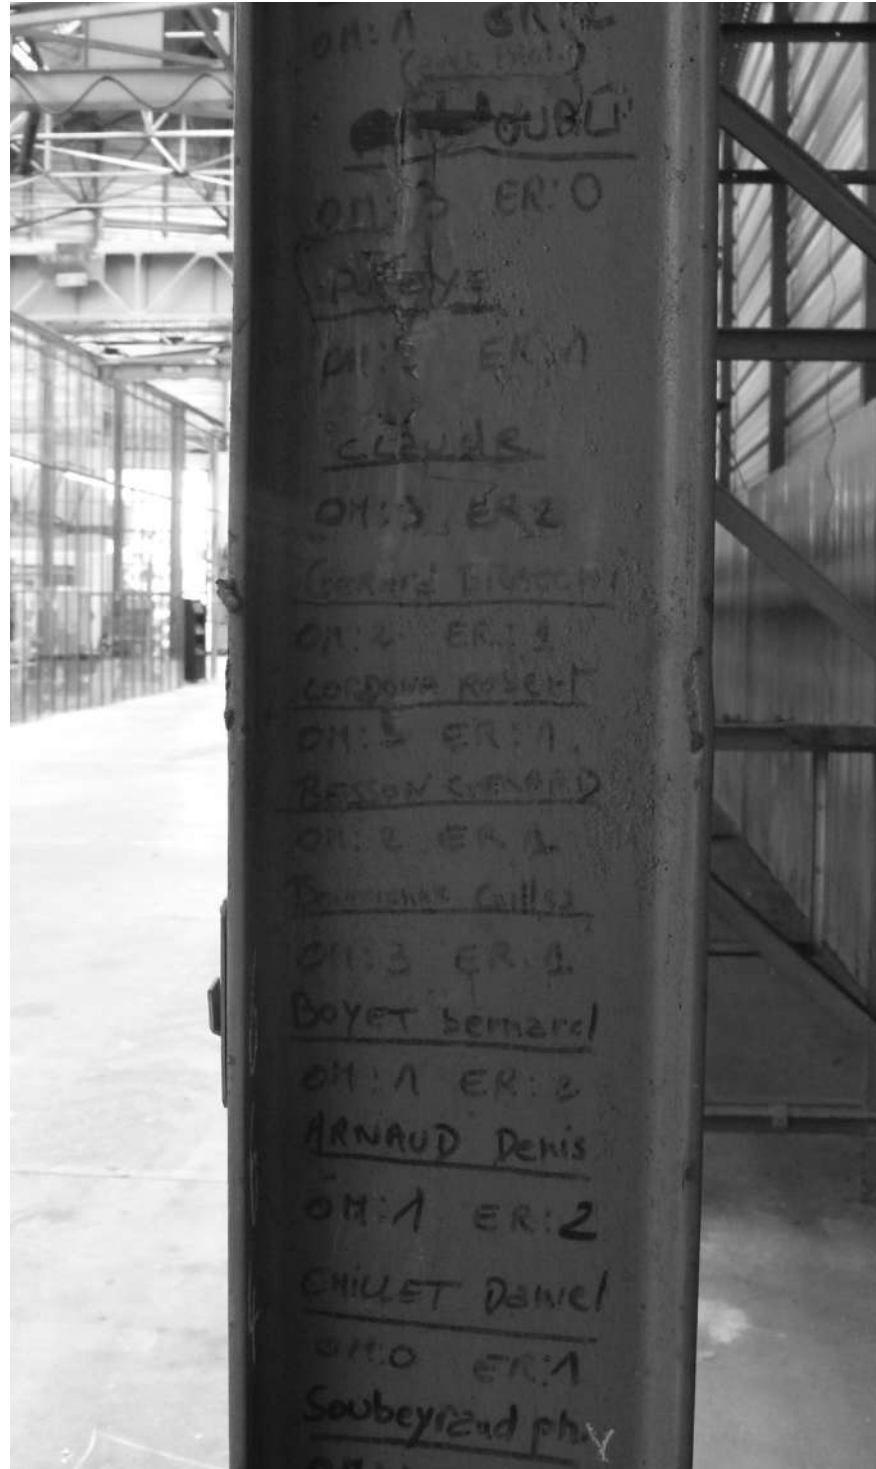 OM: 1 ER: 2
OUBLI
OM: 3 ER: 0
OM: ER: 1
Claude
OM: 3 ER 2
GERARD
OM: 2 ER: 1
CORDOVA ROBERT
OM: 3 ER: 1
BESSON GERARD
OM: 2 ER 1
Gilles
OM: 3 ER: 1
BOYET bernard
OM: 1 ER: 2
ARNAUD Denis
OM: 1 ER: 2
CHILLET Daniel
OM: 0 ER: 1
Soubeyrand ph.